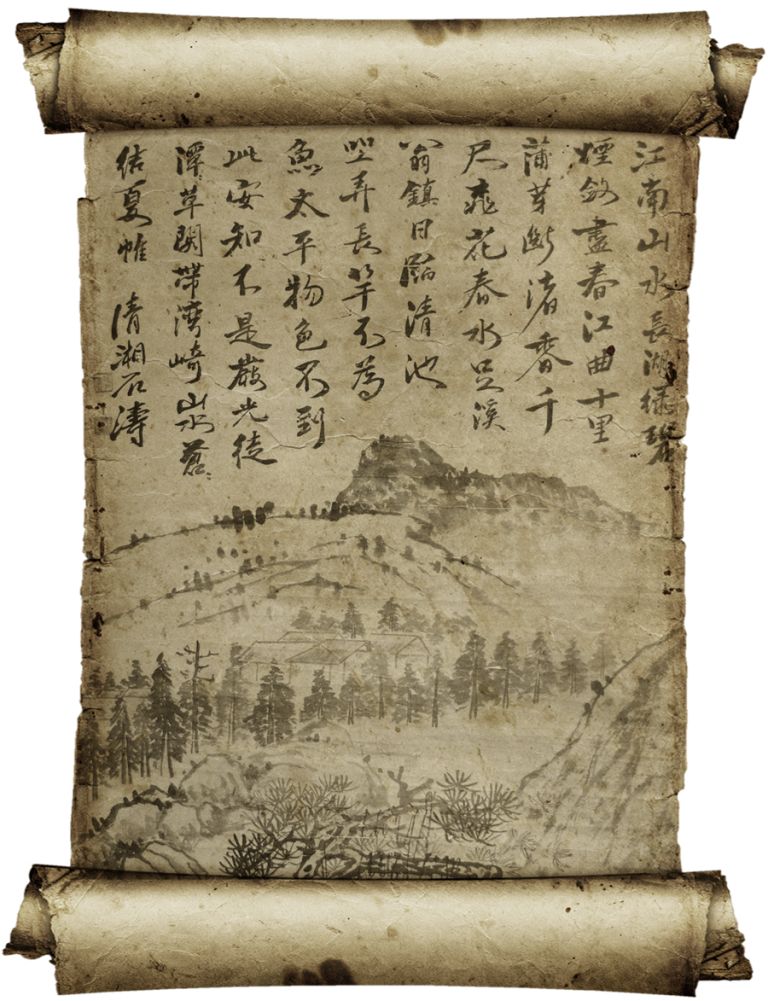 江南山水長湖綠碧
煙斂盡春江曲十里
蒲芽斷渚香千
尺桃花春水足溪
翁鎮日臨清池
坐弄長竿不為
魚太平物色不到
此安知不是嚴光徒
潭草帶灣崎
結夏帷 清湘石濤